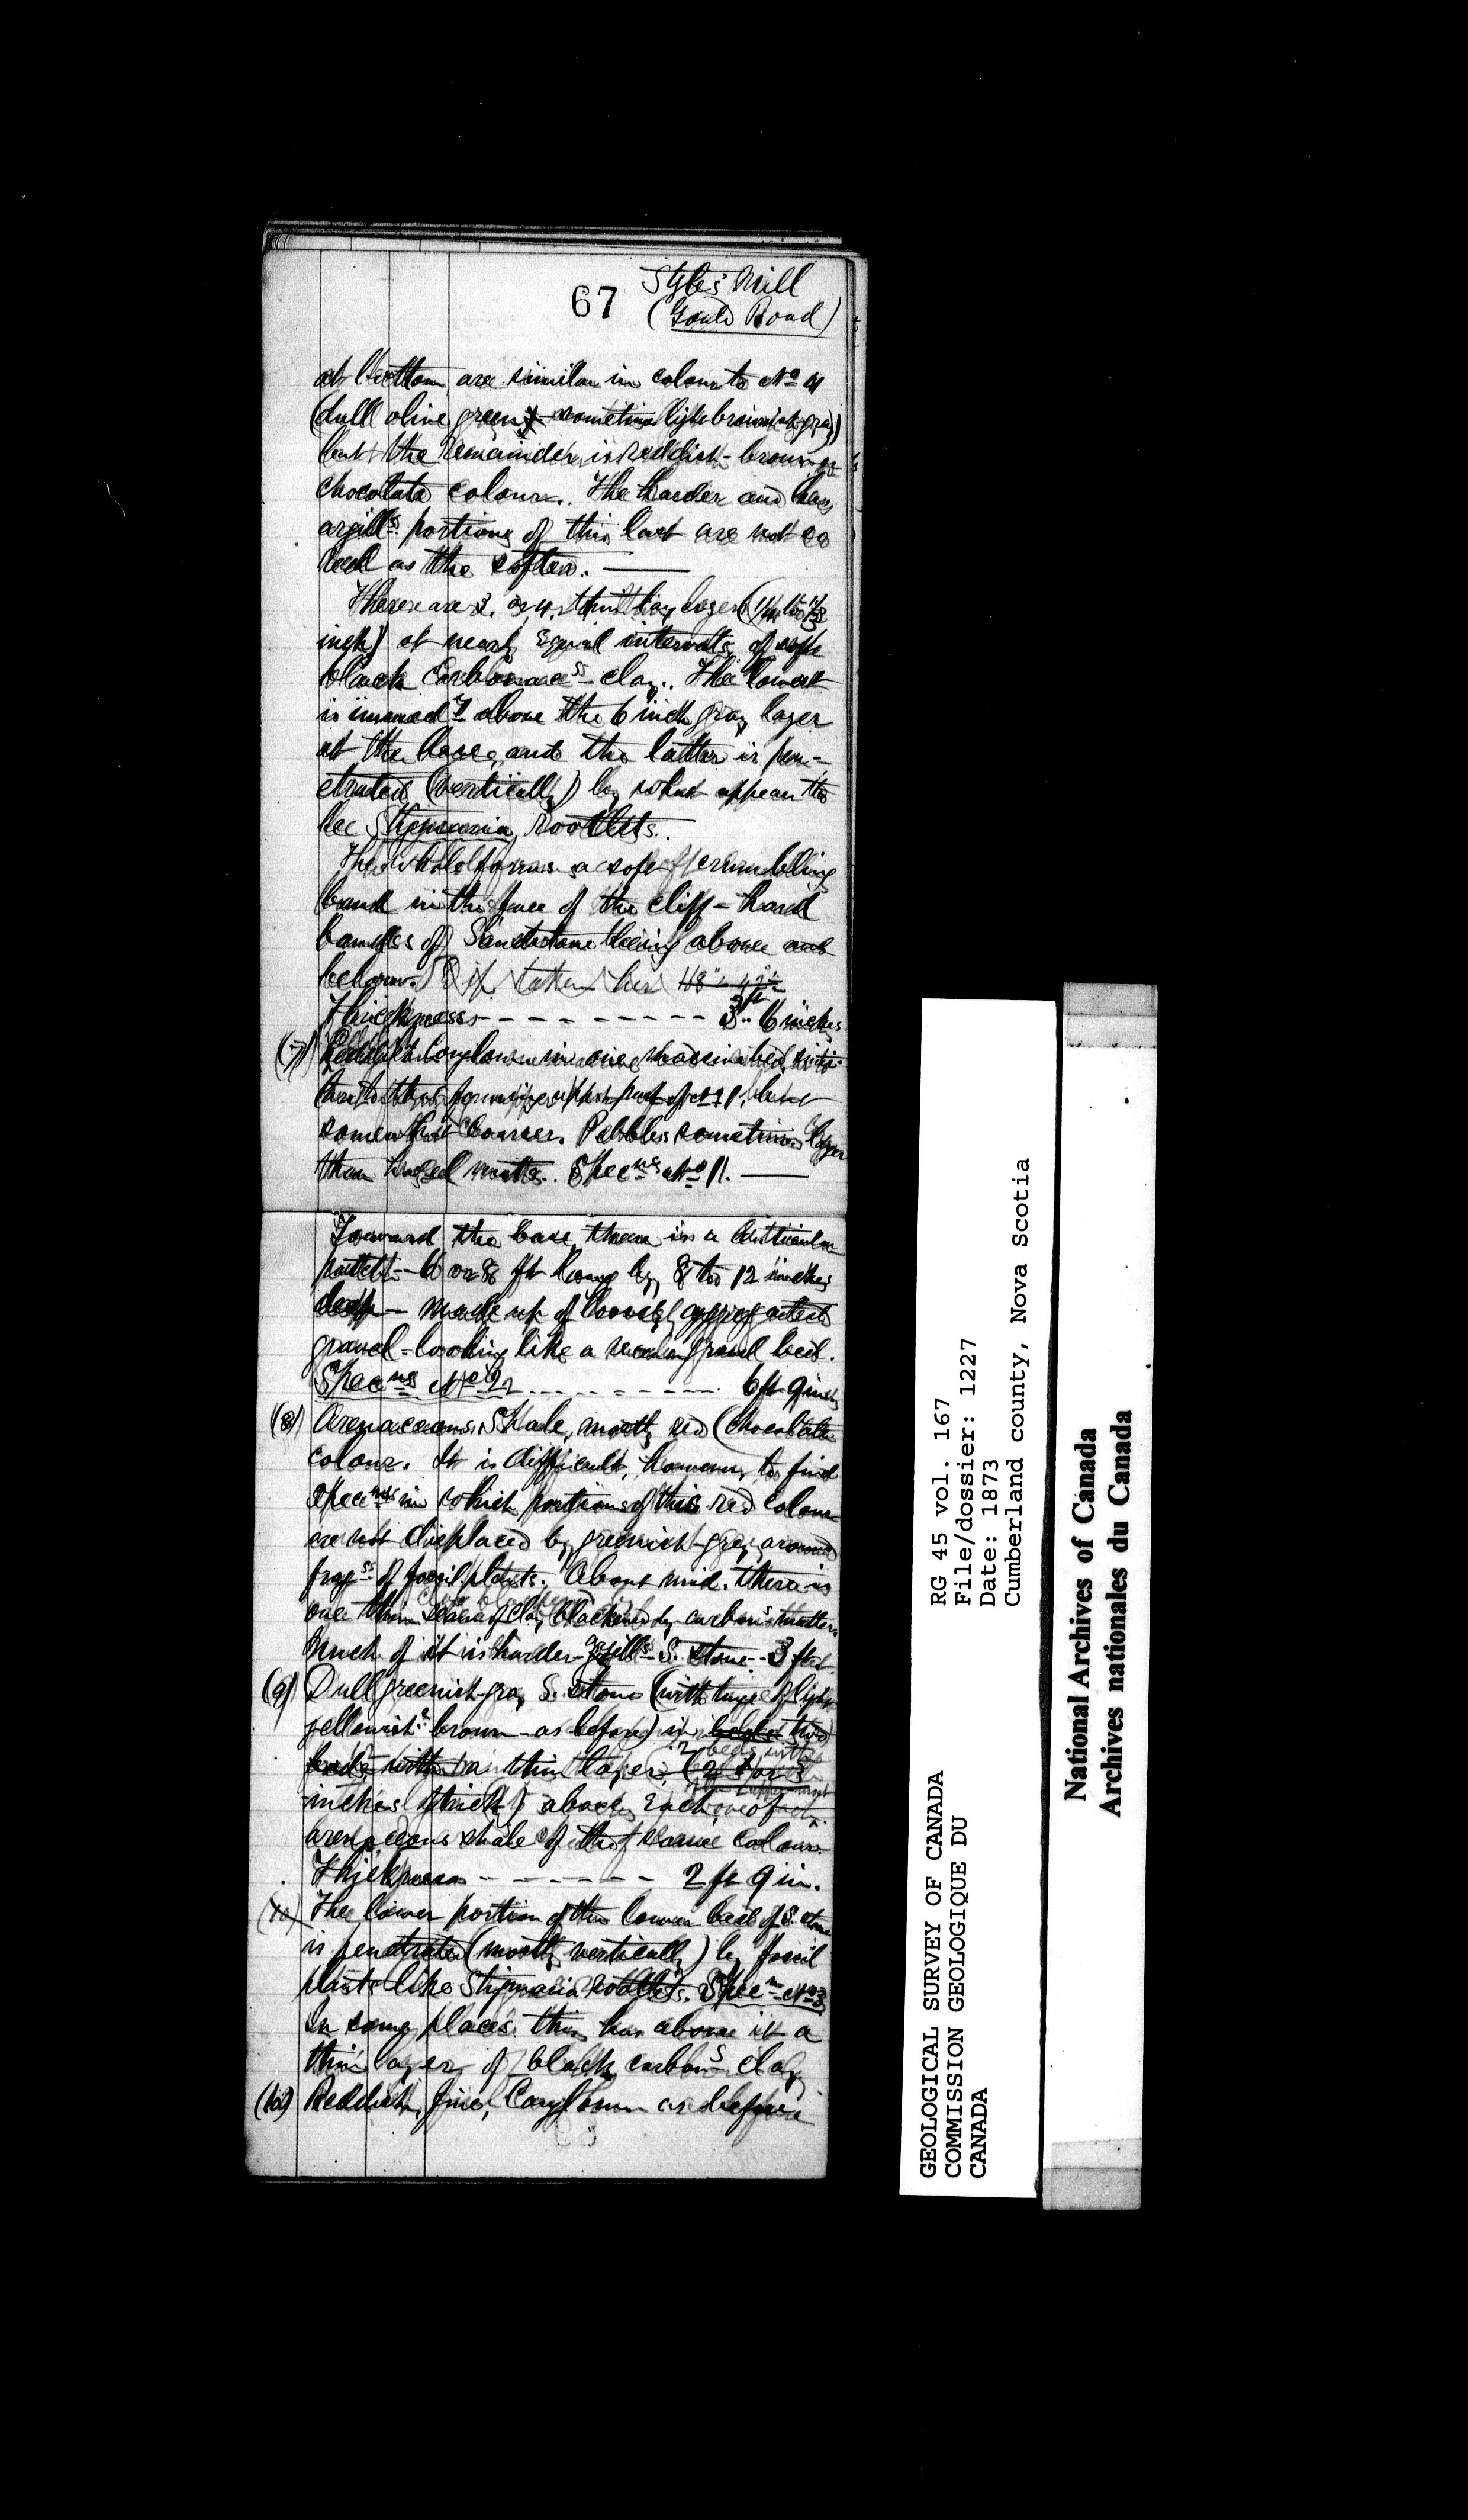 67
Styles Mill
(Gould Road)
at bottom are similar in colour to No 4
(dull olive green, sometimes light brownish-gray)
but the remainder is reddish-brown or
chocolate colour. The harder and less
argills portions of this last are not so
red as the softer.
There are 3 or 4 thin clay layers (1/4 to 1/3
inch) at nearly equal intervals of soft
black carbonaces clay. The lowest
is immedy above the 6 inch gray layer
at the base, and the latter is pen-
etrated (vertically) by what appear to
be Stigmaria rootlets.
The whole forms a soft crumbling
band in the face of the cliff - hard
bands of Sandstone being above and
below. Dip taken here
Thickness - - - - - - - - - 3 ft 6 inches
(7) Reddish Conglom in one massive bed, simi-
lar to that forming upper part of No 1, but
somewhat coarser. Pebbles sometimes larger
than hazel nuts. Specns No 1.
Toward the base there is a lenticular
patch - 6 or 8 ft long by 8 to 12 inches
deep - made up of loosely aggregated
gravel - looking like a modern gravel bed.
Specns No 2 - - - - - - - 6 ft 9 inches
(8) Arenaceous Shale, mostly red (chocolate
colour. It is difficult, however, to find
specns in which portions of this red colour
are not displaced by greenish-grey around
frags of fossil plants. About mid. there is
one thin seam of clay blackened by carbons matter.
Much of it is harder - argills S. stone - 3 feet
(9) Dull greenish-gray S. stone (with tinge of light
yellowish brown - as before) in two
beds with a thin layer (2 or 3
inches thick) above each one of
arenaceous shale of the same colour.
Thickness - - - - - - 2 ft 9 in.
(10) The lower portion of the lower bed of S. stone
is penetrated (mostly vertically) by fossil
plants like Stigmaria rootlets. Specn No 3
In some places this has above it a
thin layer of black carbons clay
(10) Reddish, fine, Conglom as before
GEOLOGICAL SURVEY OF CANADA
COMMISSION GEOLOGIQUE DU
CANADA
RG 45 vol. 167
File/dossier: 1227
Date: 1873
Cumberland county, Nova Scotia
National Archives of Canada
Archives nationales du Canada